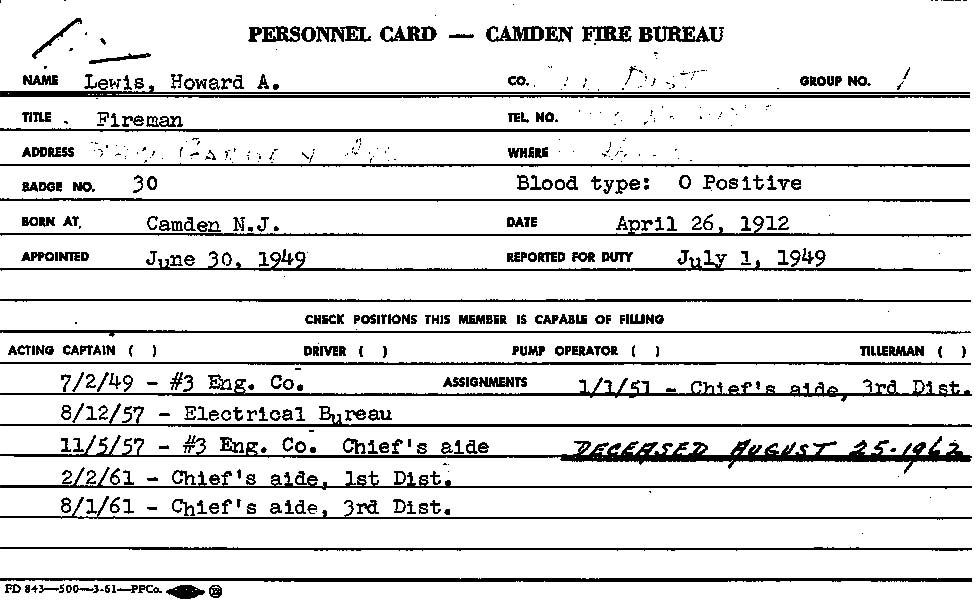 PERSONNEL CARD — CAMDEN FIRE BUREAU
NAME Lewis, Howard A. CO. Dist GROUP NO. 1
TITLE Fireman TEL. NO.
ADDRESS WHERE
BADGE NO. 30 Blood type: O Positive
BORN AT, Camden N.J. DATE April 26, 1912
APPOINTED June 30, 1949 REPORTED FOR DUTY July 1, 1949
CHECK POSITIONS THIS MEMBER IS CAPABLE OF FILLING
ACTING CAPTAIN ( ) DRIVER ( ) PUMP OPERATOR ( ) TILLERMAN ( )
7/2/49 - #3 Eng. Co. ASSIGNMENTS 1/1/51 - Chief's aide, 3rd Dist.
8/12/57 - Electrical Bureau
11/5/57 - #3 Eng. Co. Chief's aide DECEASED AUGUST 25-1962
2/2/61 - Chief's aide, 1st Dist.
8/1/61 - Chief's aide, 3rd Dist.
FD 843—500—3-61—PPCo.